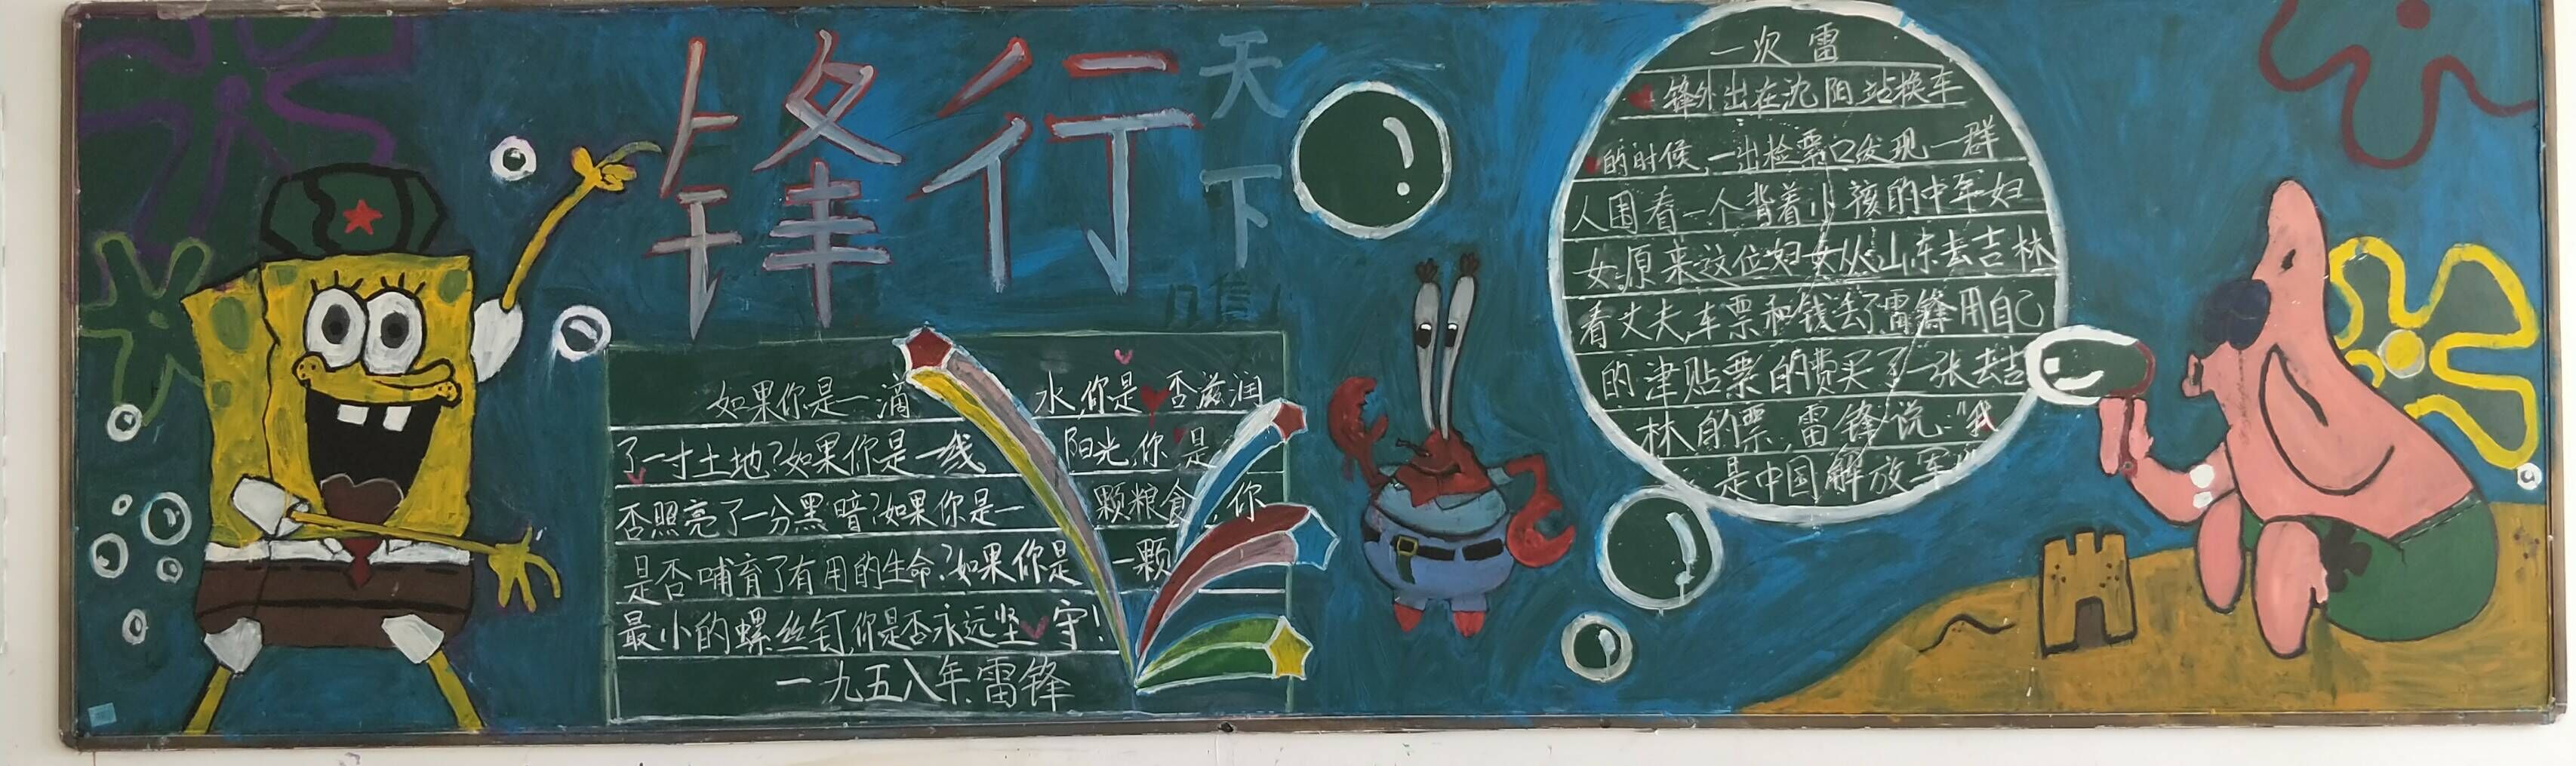 锋行
天下
如果你是一滴水,你是否滋润
了一寸土地?如果你是一线阳光,你是
否照亮了一分黑暗?如果你是一颗粮食,你
是否哺育了有用的生命?如果你是一颗
最小的螺丝钉,你是否永远坚守!
一九五八年.雷锋
一次雷
锋外出在沈阳站换车
的时候,一出检票口发现一群
人围看一个背着小孩的中年妇
女,原来这位妇女从山东去吉林
看丈夫,车票和钱丢了雷锋用自己
的津贴票的费买了一张去吉
林的票,雷锋说:"我
是中国解放军"